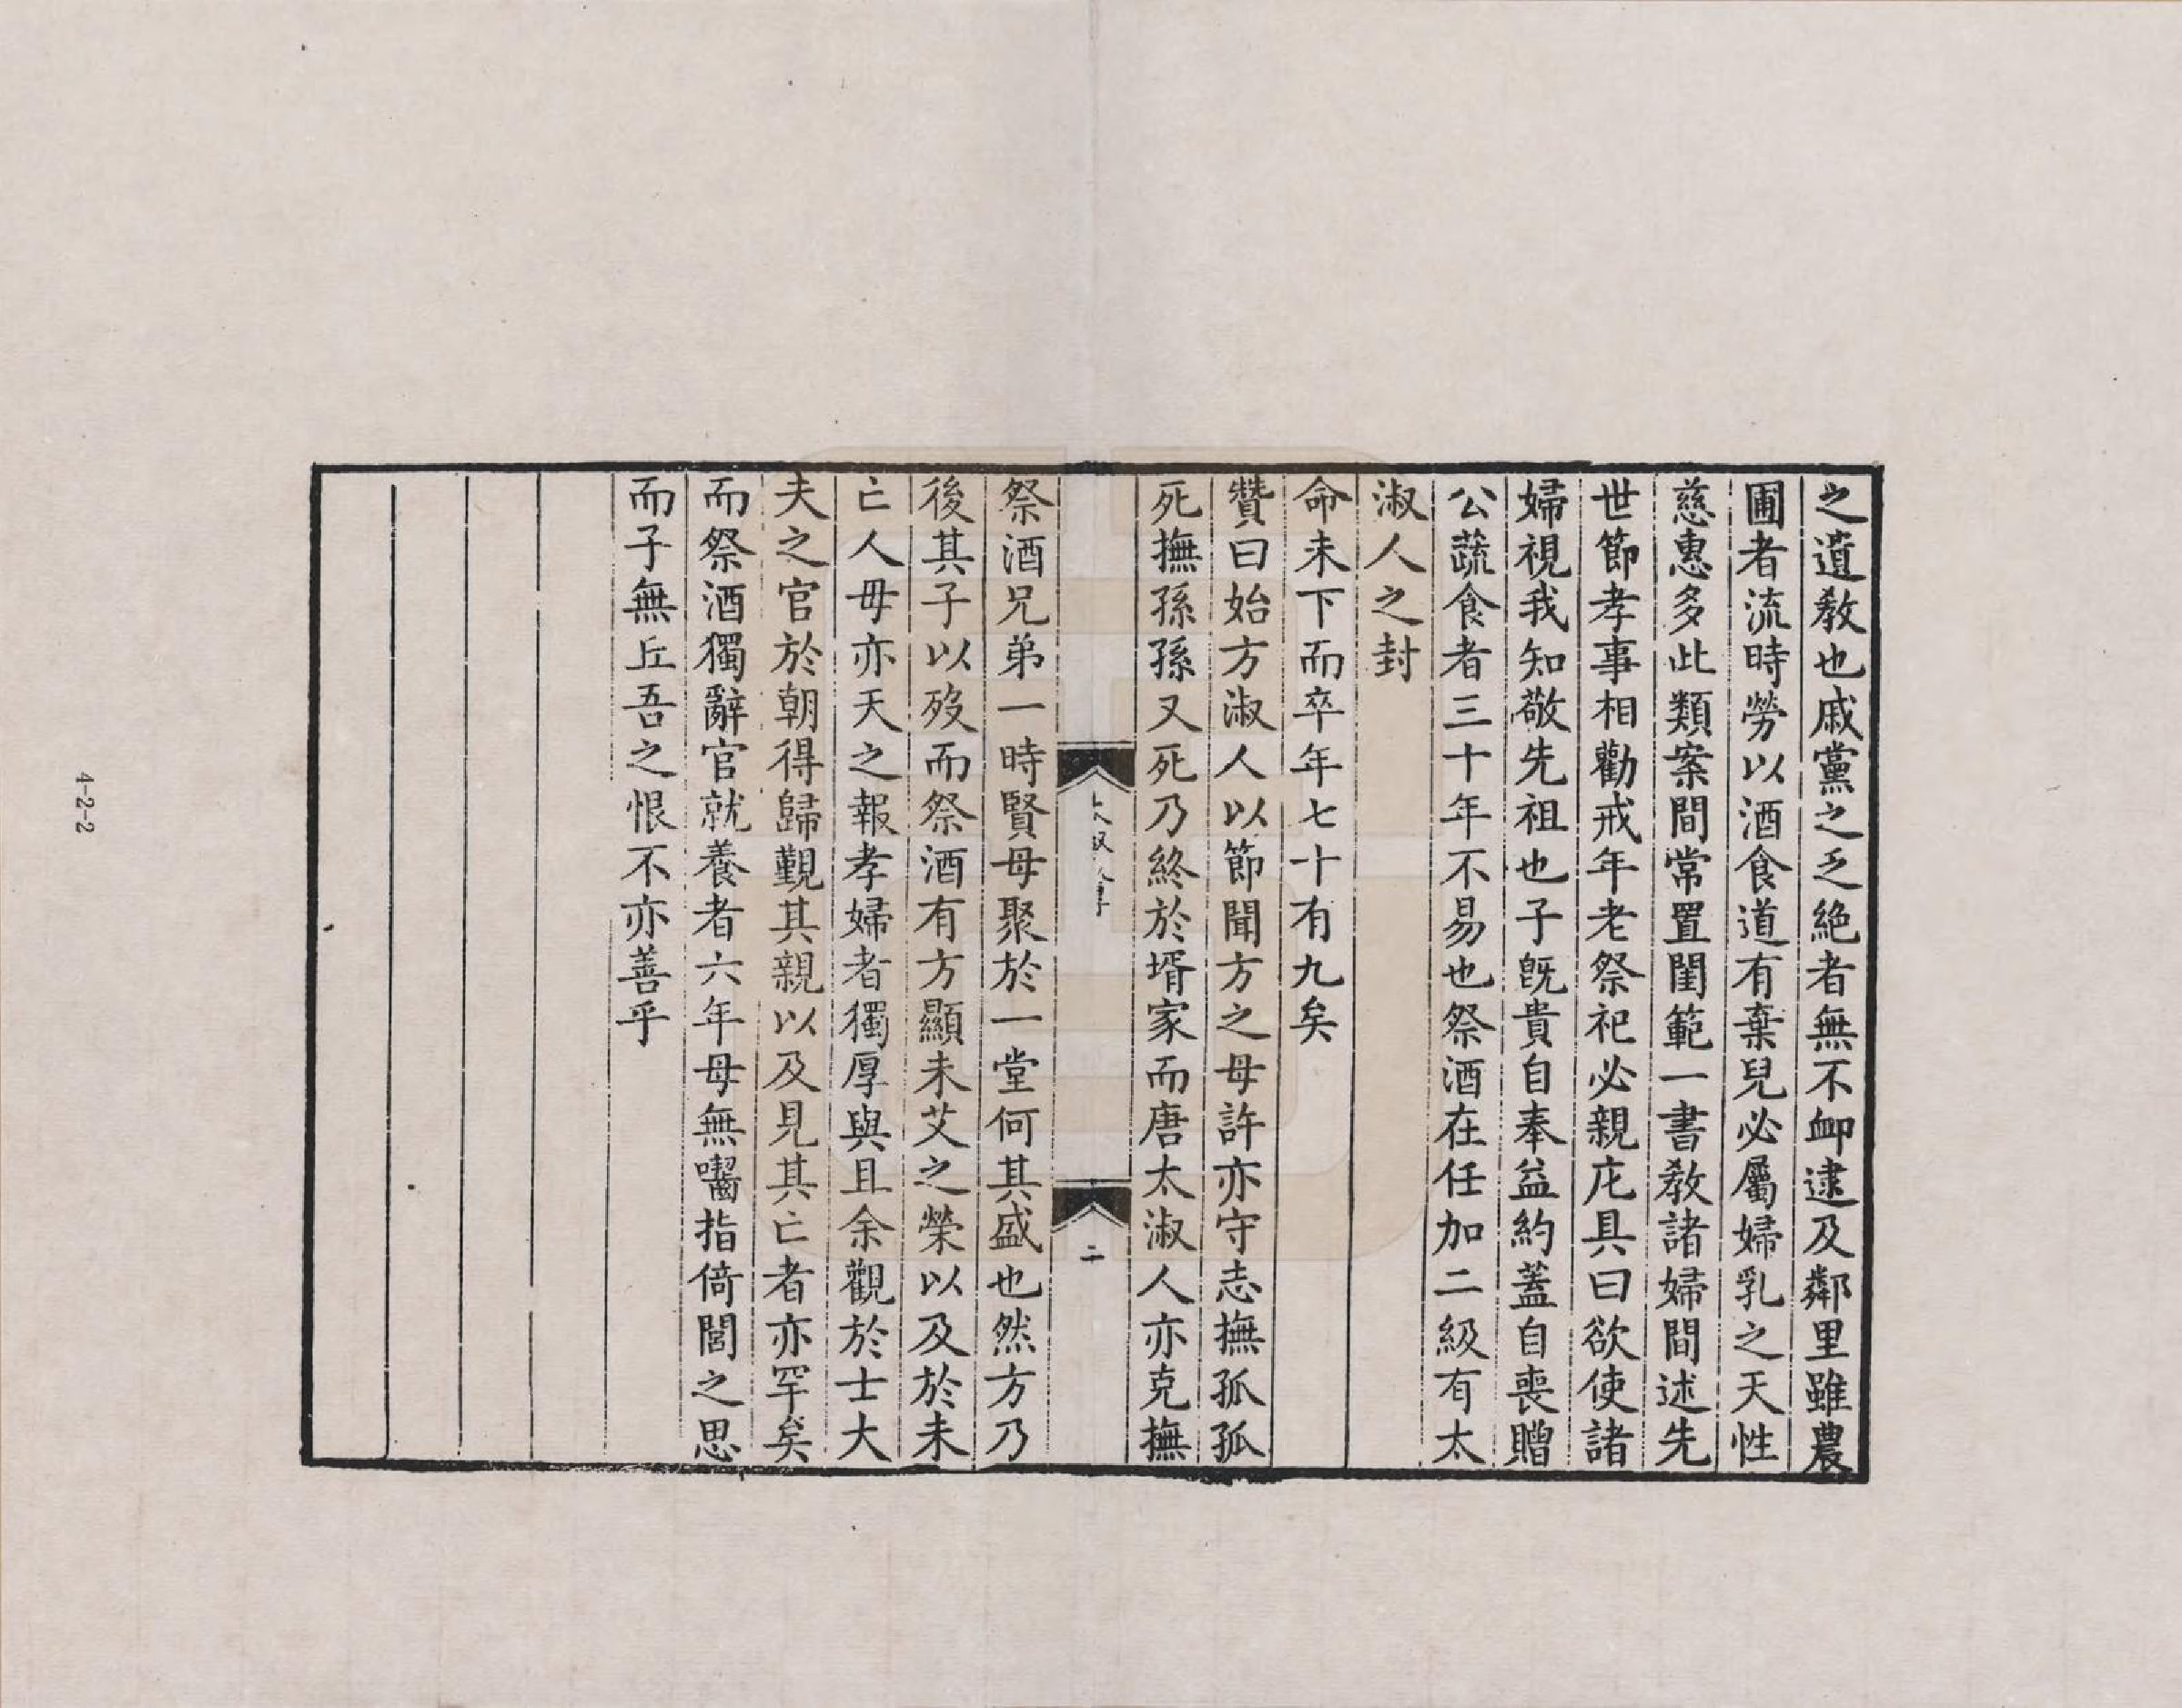 之遺教也戚黨之乏絕者無不卹逮及鄰里雖農
圃者流時勞以酒食道有棄兒必屬婦乳之天性
慈惠多此類案間常置閨範一書教諸婦間述先
世節孝事相勸戒年老祭祀必親庀具曰欲使諸
婦視我知敬先祖也子旣貴自奉益約蓋自喪贈
公蔬食者三十年不易也祭酒在任加二級有太
淑人之封
命未下而卒年七十有九矣
贊曰始方淑人以節聞方之母許亦守志撫孤孤
死撫孫孫又死乃終於壻家而唐太淑人亦克撫
二
祭酒兄弟一時賢母聚於一堂何其盛也然方乃
後其子以歿而祭酒有方顯未艾之榮以及於未
亡人毋亦天之報孝婦者獨厚與且余觀於士大
夫之官於朝得歸覲其親以及見其亡者亦罕矣
而祭酒獨辭官就養者六年母無囓指倚閭之思
而子無丘吾之恨不亦善乎
4-2-2